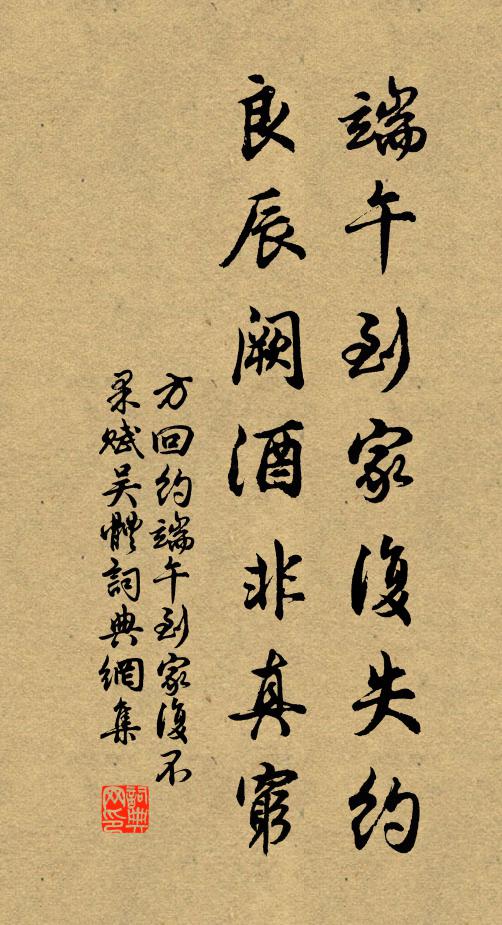 端午到家復失約
良辰闕酒非真窮
方回約端午到家復不
果賦吳體詞典網集
詞典网印